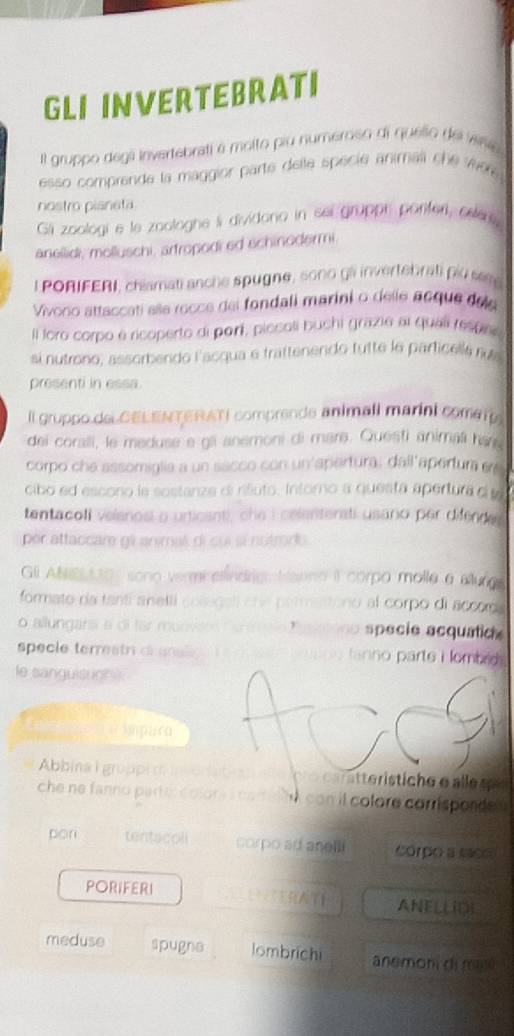 GLI INVERTEBRATI
Il gruppo degli invertebrati è molto più numeroso di quello dei
esso comprende la maggior parte delle specie animali che
nostro pianeta.
Gli zoologi e le zoologhe li dividono in sei gruppi: poriferi,
anellidi, molluschi, artropodi ed echinodermi.
I PORIFERI, chiamati anche spugne, sono gli invertebrati più
Vivono attaccati alle rocce dei fondali marini o delle acque
Il loro corpo è ricoperto di pori, piccoli buchi grazie ai quali
si nutrono, assorbendo l'acqua e trattenendo tutte le particelle
presenti in essa.
Il gruppo dei CELENTERATI comprende animali marini come
dei coralli, le meduse e gli anemoni di mare. Questi animali
corpo che assomiglia a un sacco con un'apertura: dall'apertura
cibo ed escono le sostanze di rifiuto. Intorno a questa apertura
tentacoli velenosi o urticanti, che i celenterati usano per
per attaccare gli animali di cui si nutrono.
Gli sono vermi cilindrici. Hanno il corpo molle e
formato da tanti anelli collegati che permettono al corpo di
o allungarsi e di far muovere specie acquatiche
specie terrestri fanno parte i
le sanguisughe.
ACCEI
impara
Abbina i gruppi di caratteristiche e alle
che ne fanno parte: colora con il colore corrisponde
pori tentacoli corpo ad anelli corpo a
PORIFERI CELENTERATI ANELLIDI
meduse spugne lombrichi anemoni di